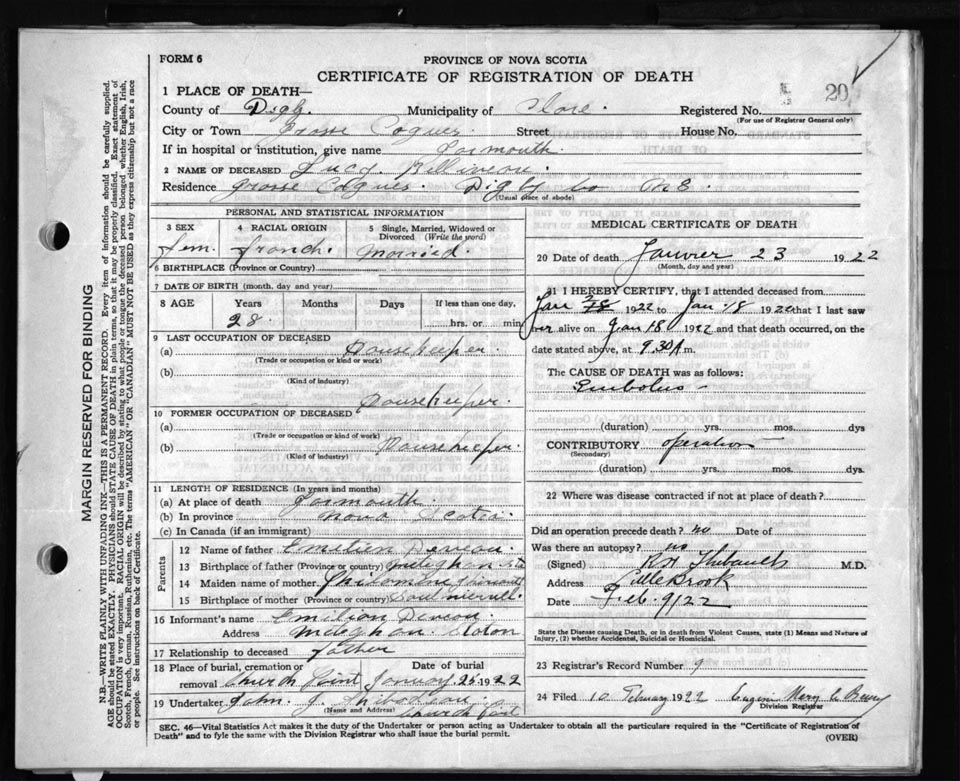 FORM 6
PROVINCE OF NOVA SCOTIA
CERTIFICATE OF REGISTRATION OF DEATH
20
1 PLACE OF DEATH—
County of Digby. Municipality of Clare. Registered No.
(For use of Registrar General only)
City or Town Grosse Coques Street House No.
If in hospital or institution, give name Yarmouth.
2 NAME OF DECEASED Lucy Belliveau.
Residence Grosse Coques. Digby Co N S.
(Usual place of abode)
PERSONAL AND STATISTICAL INFORMATION
3 SEX 4 RACIAL ORIGIN 5 Single, Married, Widowed or Divorced (Write the word)
fem. french. married.
6 BIRTHPLACE (Province or Country)
7 DATE OF BIRTH (month, day and year)
8 AGE Years Months Days If less than one day,
28 hrs. or min.
9 LAST OCCUPATION OF DECEASED
(a) Housekeeper.
(Trade or occupation or kind or work)
(b)
(Kind of industry)
Housekeeper.
10 FORMER OCCUPATION OF DECEASED
(a)
(Trade or occupation or kind of work)
(b) Housekeeper.
(Kind of industry)
11 LENGTH OF RESIDENCE (In years and months)
(a) At place of death Yarmouth.
(b) In province Nova Scotia.
(c) In Canada (if an immigrant)
Parents
12 Name of father Emilien Deveau.
13 Birthplace of father (Province or country) Meteghan Sta
14 Maiden name of mother Philomene
15 Birthplace of mother (Province or country)
16 Informant's name Emilien Deveau
Address Meteghan Station
17 Relationship to deceased father
18 Place of burial, cremation or removal Date of burial
Church Point January 25 1922
19 Undertaker John. J. Thibodeau.
(Name and Address) Church Point
MEDICAL CERTIFICATE OF DEATH
20 Date of death Janvier 23 1922
(Month, day and year)
21 I HEREBY CERTIFY, that I attended deceased from
Jan 1922 to Jan 18 1922 that I last saw
her alive on Jan 18 1922 and that death occurred, on the
date stated above, at 9.30 A m.
The CAUSE OF DEATH was as follows:
Embolus
(duration) yrs. mos. dys
CONTRIBUTORY operation
(Secondary)
(duration) yrs. mos. dys.
22 Where was disease contracted if not at place of death?
Did an operation precede death? no Date of
Was there an autopsy? no
(Signed) Thibault M.D.
Address Little Brook
Date Feb. 9/22
State the Disease causing Death, or in death from Violent Causes, state (1) Means and Nature of Injury, (2) whether Accidental, Suicidal or Homicidal.
23 Registrar's Record Number 9
24 Filed 10 February 1922 Mary
Division Registrar
SEC. 46—Vital Statistics Act makes it the duty of the Undertaker or person acting as Undertaker to obtain all the particulars required in the "Certificate of Registration of
Death" and to fyle the same with the Division Registrar who shall issue the burial permit.
(OVER)
MARGIN RESERVED FOR BINDING
N.B.—WRITE PLAINLY WITH UNFADING INK—THIS IS A PERMANENT RECORD. Every item of information should be carefully supplied.
AGE should be stated EXACTLY. PHYSICIANS should STATE CAUSE OF DEATH in plain terms, so that it may be properly classified. Exact statement of
OCCUPATION is very important. RACIAL ORIGIN will be described by stating to what people or tongue the deceased person belonged whether English, Irish,
Scotch, French, German, Russian, Ruthenian, etc. The terms "AMERICAN" or "CANADIAN" MUST NOT BE USED as they express citizenship but not a race
or people. See instructions on back of Certificate.